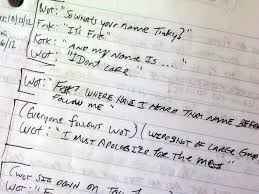 10/12
Wot: "So whats your name Tinky?"
Frk: "It's Frk"
Fork: "And my name is ...."
Wot: "I Don't care."
6/12
Wot: "Fork? Where have I heard that name before
follow me"
(Everyone follows Wot) (Wot of large
Wot: "I must apologize for the mess"
(Wot sits down on
Wot: "